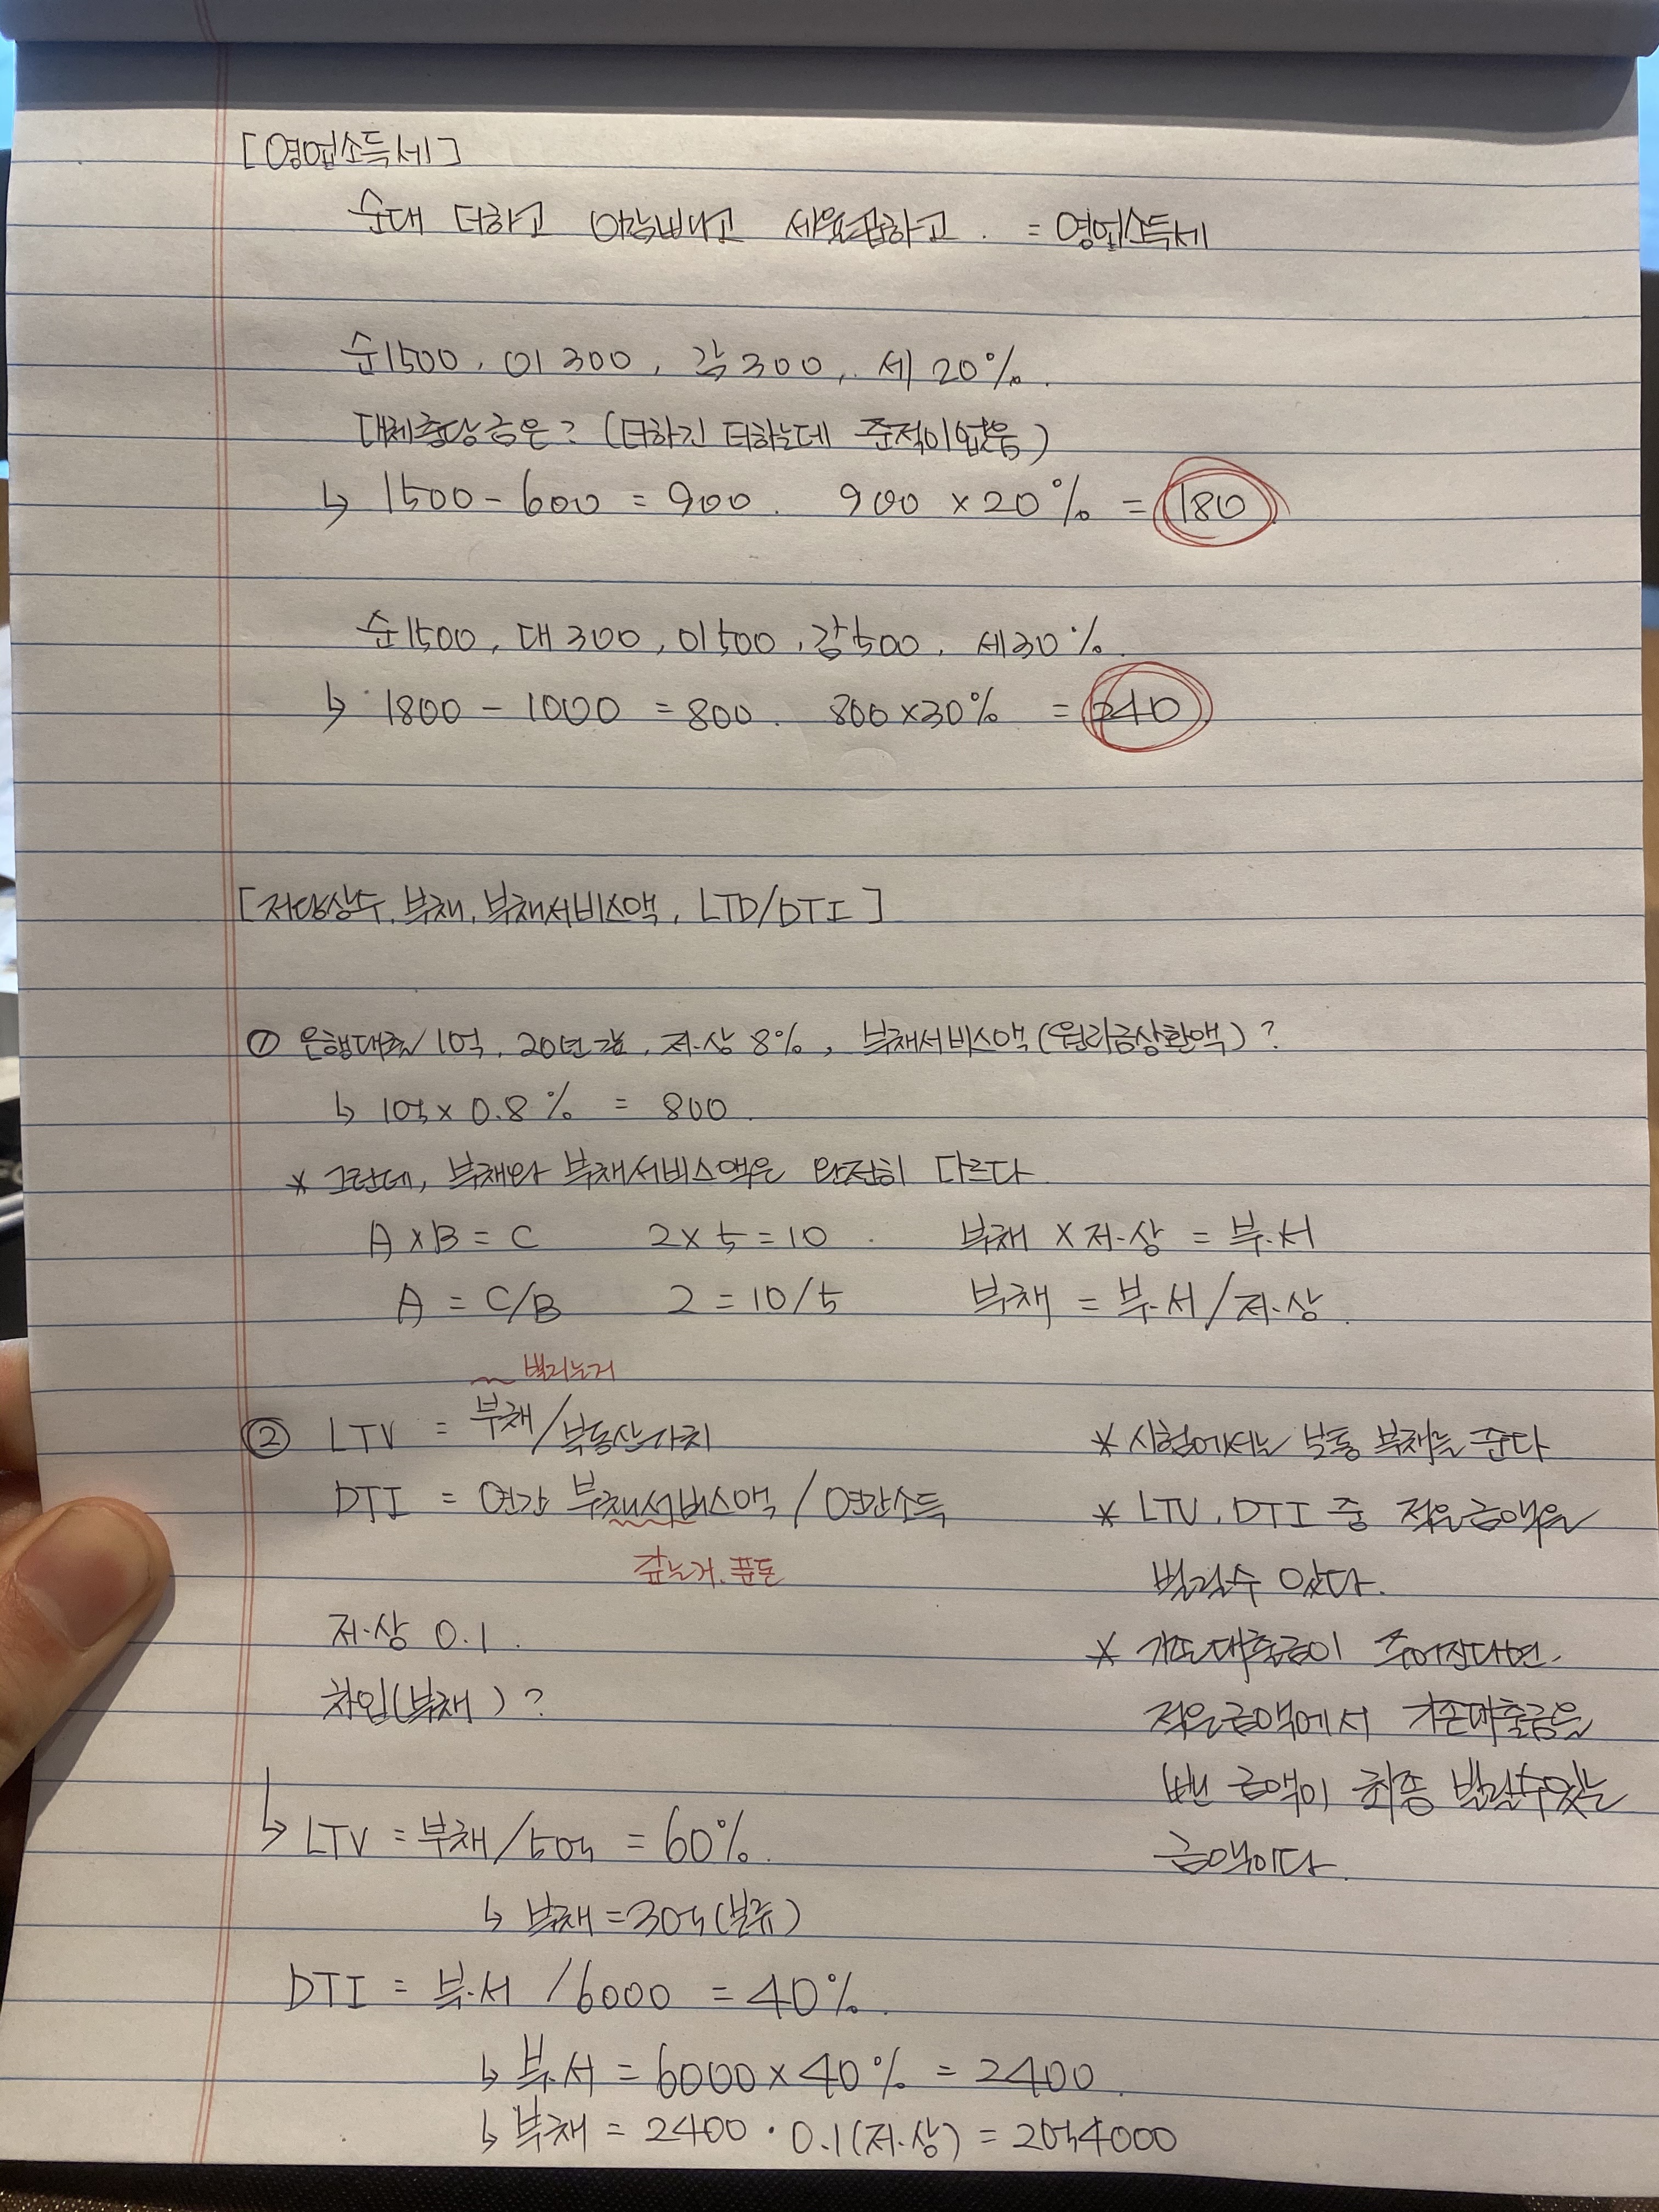 [영업소득세]
순대 더하고 이감빼고 세율곱하고 . = 영업소득세
순1500, 이300, 감300, 세20%.
대체충당금은? (더하긴 더하는데 준적이없음)
↳ 1500 - 600 = 900. 900 × 20% = 180
순1500, 대300, 이500, 감500, 세30%.
↳ 1800 - 1000 = 800. 800×30% = 240
[저당상수, 부채, 부채서비스액, LTD/DTI]
① 은행대출 1억, 20년간, 저.상 8%, 부채서비스액(원리금상환액)?
↳ 1억 × 0.8% = 800.
* 그런데, 부채와 부채서비스액은 완전히 다르다
A×B = C 2×5=10 . 부채 × 저.상 = 부.서
A = C/B 2=10/5 부채 = 부.서/저.상.
빌리는거
② LTV = 부채/부동산가치
DTI = 연간 부채서비스액 / 연간소득
갚는거. 푼돈
저.상 0.1.
차입(부채)?
↳ LTV = 부채/5억 = 60%.
↳ 부채=3억
DTI = 부.서 /6000 = 40%.
↳ 부.서 = 6000×40% = 2400.
↳ 부채 = 2400 · 0.1(저.상) = 2억4000
* 시험에서는 보통 부채를 준다
* LTV, DTI 중 적은금액을
빌릴수 있다.
* 기존대출금이 주어진다면.
적은금액에서 기존대출금을
뺀 금액이 최종 빌릴수있는
금액이다.